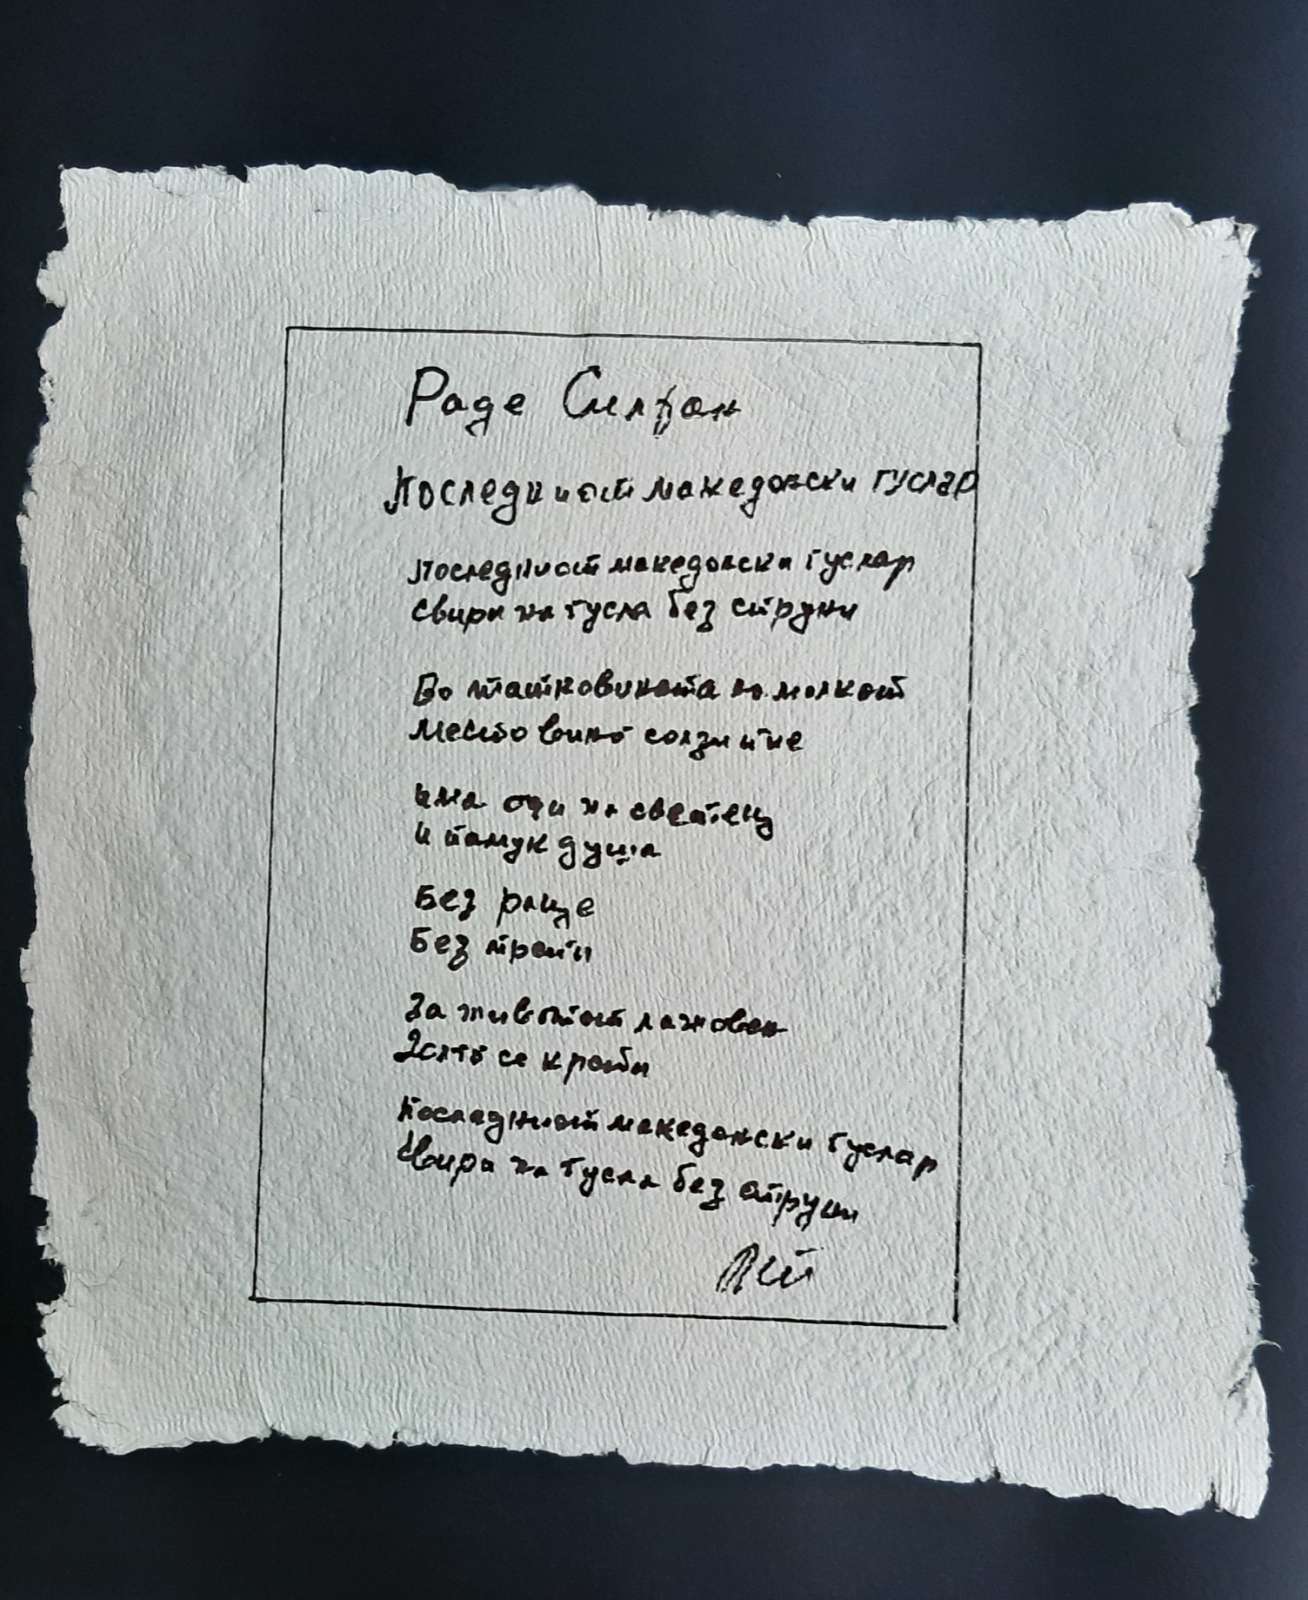 Раде Силјан
Последниот македонски гуслар
Последниот македонски гуслар
Свири на гусла без струни
Во татковината на молкот
Место вино солзи пие
Има очи на светец
И памук душа
Без раце
Без прсти
За животот лажовен
Зошто се крати
Последниот македонски гуслар
Свири на гусла без струни